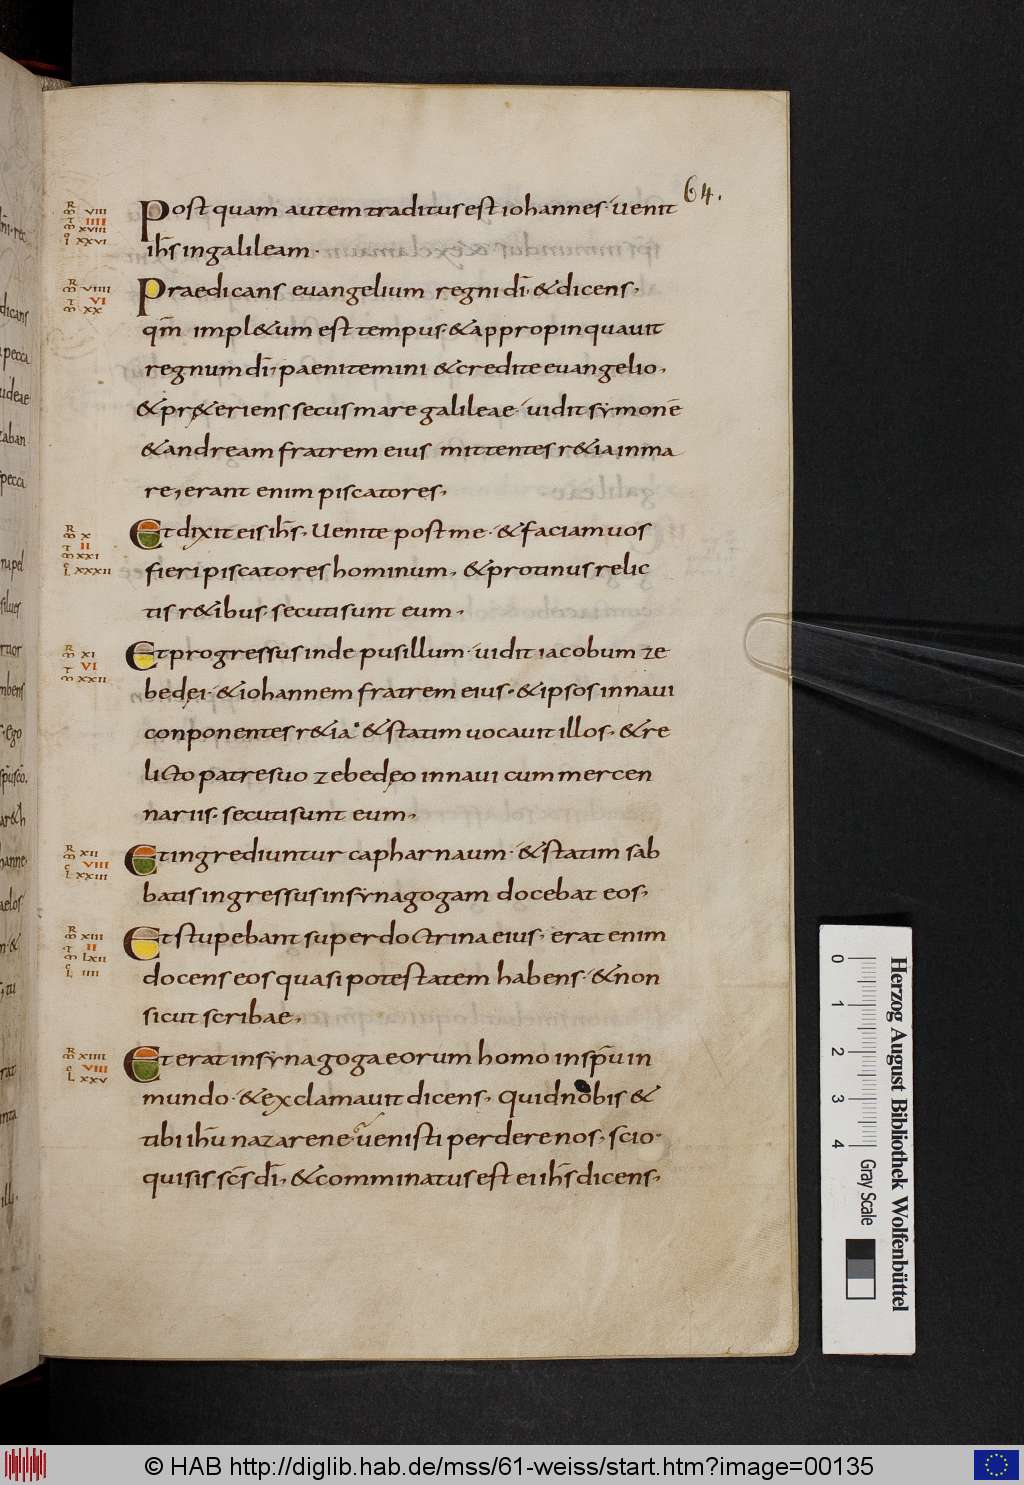 64.
R
m VIII
T IIII
m XVIII
L XXVI
Postquam autem traditus est iohannes· uenit
ih̅s in galileam·
R
m VIIII
T VI
m XX
Praedicans euangelium regni dī, & dicens,
qm̅ impl&um est tempus· & appropinquauit
regnum dī, paenitemini & credite euangelio,
& pr&eriens secus mare galileae· uidit symonē
& andream fratrem eius mittentes r&ia in ma
re, erant enim piscatores,
R
m X
T II
m XXI
L XXXII
Et dixit eis ih̅s, Uenite post me· & faciam uos
fieri piscatores hominum, & protinus relic
tis r&ibus· secuti sunt eum,
R
m XI
T VI
m XXII
Et progressus inde pusillum· uidit iacobum ze
bedęi· & iohannem fratrem eius· & ipsos in naui
conponentes r&ia· & statim uocauit illos, & re
licto patre suo zebedęo in naui cum mercen
nariis· secuti sunt eum,
R
m XII
VIII
L XXIII
Et ingrediuntur capharnaum· & statim sab
batis ingressus in synagogam docebat eos,
R
m XIII
T II
m LXII
L IIII
Et stupebant super doctrina eius, erat enim
docens eos quasi potestatem habens· & non
sicut scribae,
R
m XIIII
VIII
L XXV
Et erat in synagoga eorum homo in sp̅u in
mundo· & exclamauit dicens, Quid nobis &
tibi ih̅u nazarene uenisti perdere nos, scio·
quis is sc̅s dī, & comminatus est ei ih̅s dicens,
0 1 2 3 4
Gray Scale
Herzog August Bibliothek Wolfenbüttel
© HAB http://diglib.hab.de/mss/61-weiss/start.htm?image=00135